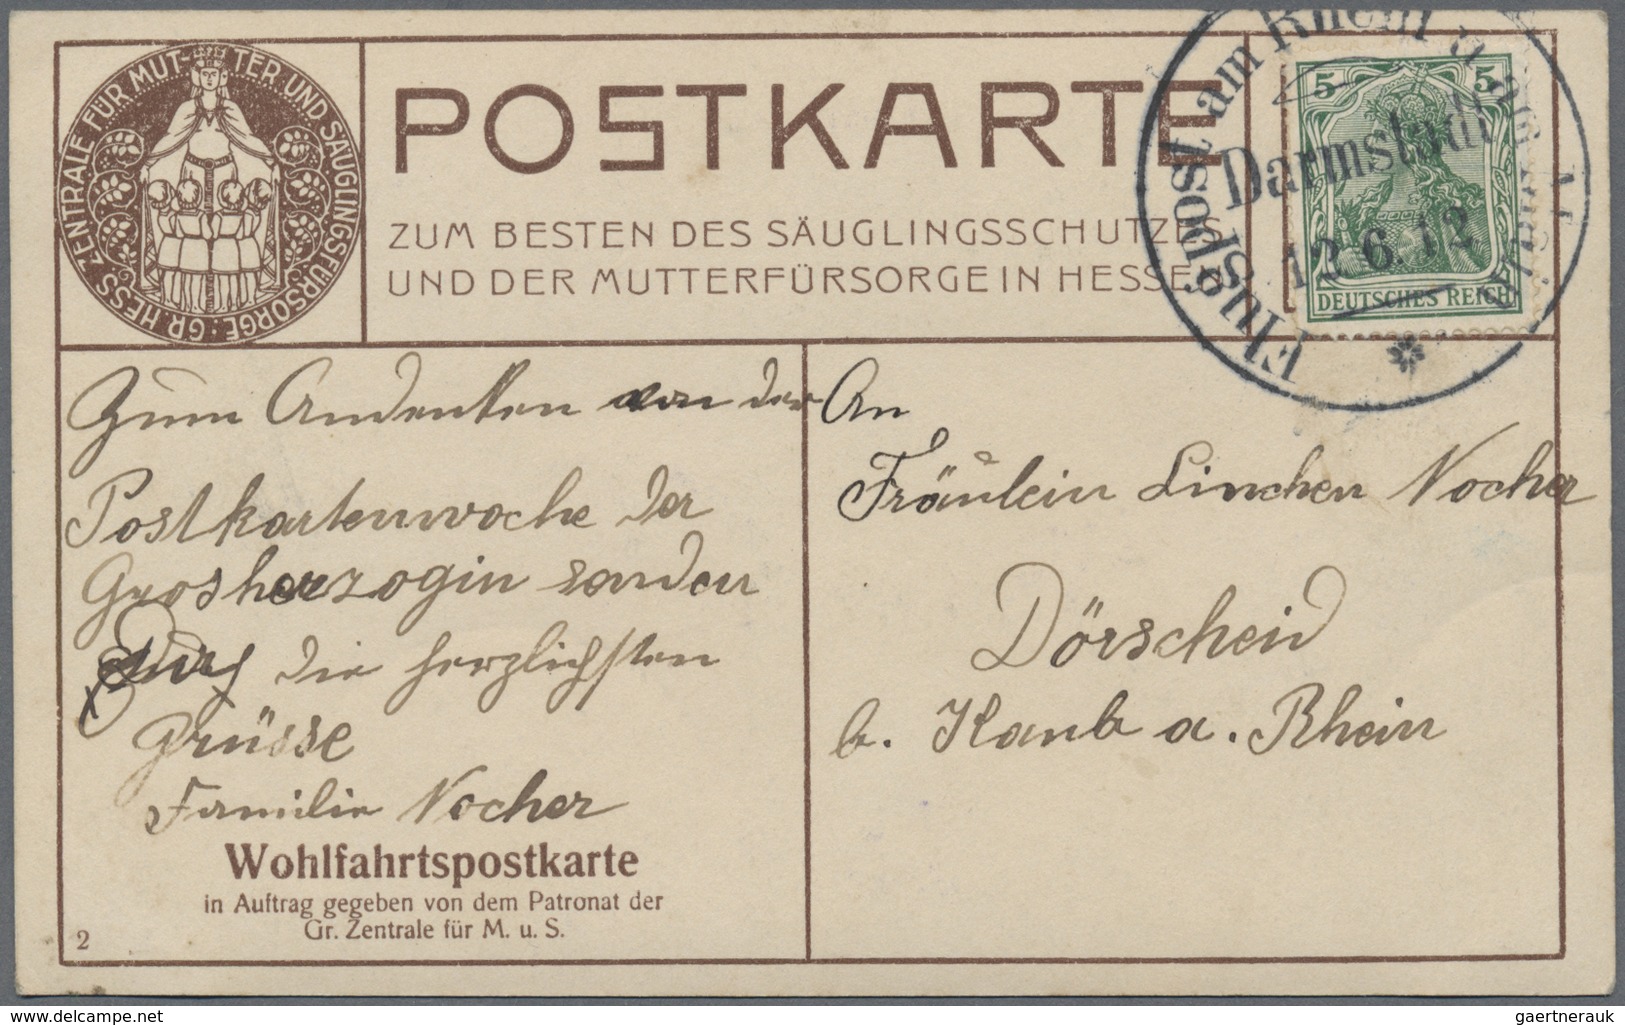 ZENTRALE FÜR MUT-TER UND SÄUGLINGSFÜRSORGE · GR HESS
POSTKARTE
ZUM BESTEN DES SÄUGLINGSSCHUTZES
UND DER MUTTERFÜRSORGE IN HESSEN
5 5
DEUTSCHES REICH
Flugpost am Rhein u. am Main
Darmstadt
12.6.12
Zum Andenken von der
Postkartenwoche der
Grosherzogin senden
die herzlichsten
Grüsse
Familie Nocher
An
Fräulein Linchen Nocher
Dörscheid
b. Kaub a. Rhein
Wohlfahrtspostkarte
in Auftrag gegeben von dem Patronat der
Gr. Zentrale für M. u. S.
2
www.briefmarken-auktion.com
gaertnerauk